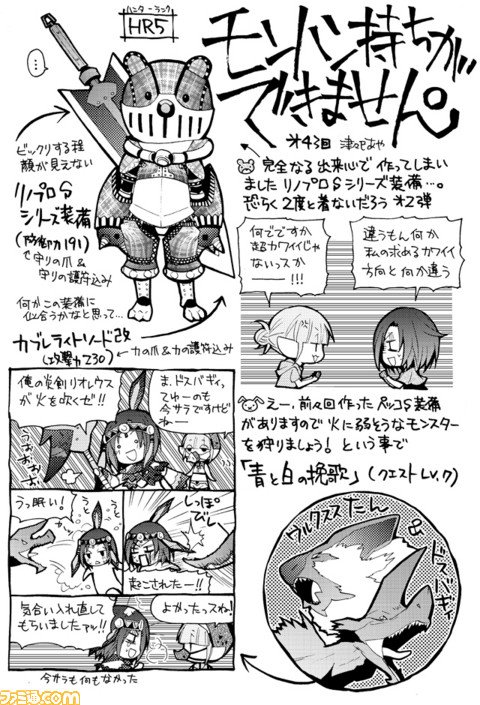 モンハン持ちが
できません。
オ43回 津のであや
ハンターランク
HR5
…
ビックリする程
顔が見えない
リノプロS
シリーズ装備
(防御力191)
で守りの爪&
守りの護符込み
何かこの装備に
似合うかなと思って…
カブレライトソード改
(攻撃力230)
←力の爪&力の護符込み
完全なる出来心で作ってしまい
ました リノプロSシリーズ装備…。
恐らく2度と着ないだろう オ2弾
何でですか
超カワイイじゃ
ないっスか
ーーー!!!
違うもん何か
私の求めるカワイイ
方向と何か違う
えー、前々回作った ペッコS装備
がありますので火に弱そうなモンスター
を狩りましょう! という事で
「青と白の挽歌」(クエストLv.7)
ウルクススたん
&
ドスバギィ
ま、ドスバギィ
てゅーのも
今サラですけど
ねー
俺の炎剣リオレウス
が火を吹くぜ!!
うおおおお
うっ眠い!
うと
しっぽ
びし
起こされたー!!
よかったっスね!
気合い入れ直して
もらいましたァッ!!
今サラも何もなかった
ファミ通.com